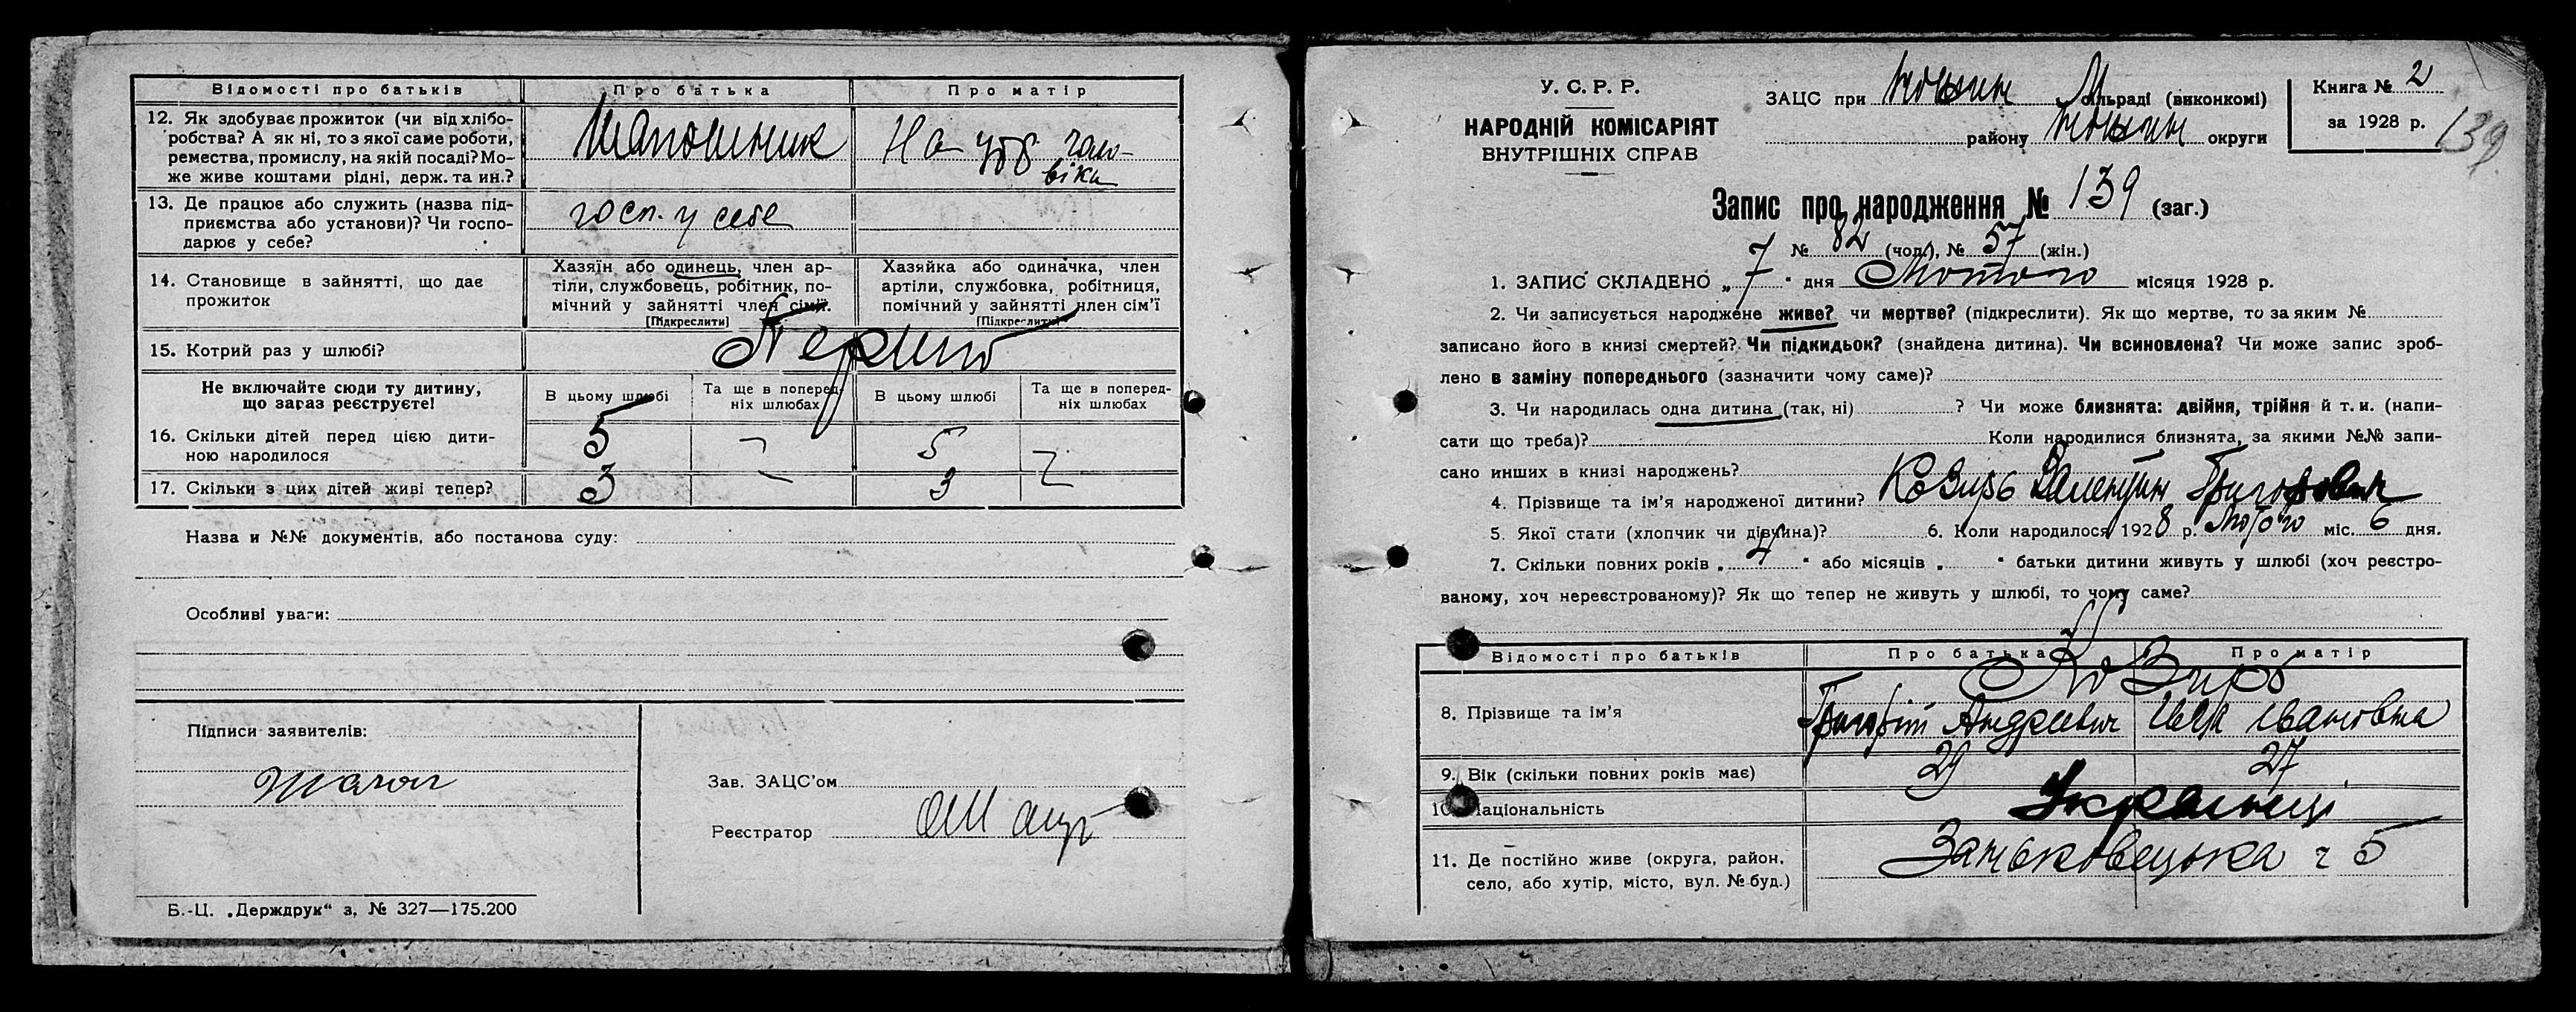 Відомості про батьків
Про батька
Про матір
12. Як здобуває прожиток (чи від хлібо-
робства? А як ні, то з якої саме роботи,
ремества, промислу, на якій посаді? Мо-
же живе коштами рідні, держ. та ин.?
Шапошник
На утр. чоло-
віка
13. Де працює або служить (назва під-
приємства або установи)? Чи госпо-
дарює у себе?
госп. у себе
14. Становище в зайнятті, що дає
прожиток
Хазяїн або одинець, член ар-
тіли, службовець, робітник, по-
мічний у зайнятті член сім'ї.
[Підкреслити]
Хазяйка або одиначка, член
артіли, службовка, робітниця,
помічний у зайнятті член сім'ї
[Підкреслити]
15. Котрий раз у шлюбі?
Не включайте сюди ту дитину,
що зараз реєструєте!
В цьому шлюбі
Та ще в поперед-
ніх шлюбах
В цьому шлюбі
Та ще в поперед-
ніх шлюбах
16. Скільки дітей перед цією дити-
ною народилося
5
5
17. Скільки з цих дітей живі тепер?
3
3
Назва и №№ документів, або постанова суду:
Особливі уваги:
Підписи заявителів:
Зав. ЗАЦС'ом
Реєстратор
Б.-Ц. „Держдрук“ з. № 327—175.200
У. С. Р. Р.
НАРОДНІЙ КОМІСАРІЯТ
ВНУТРІШНІХ СПРАВ
ЗАЦС при сільраді (виконкомі)
району округи
Книга № 2
за 1928 р.
139
Запис про народження № 139 (заг.)
№ 82 (чол.), № 57 (жін.)
1. ЗАПИС СКЛАДЕНО „ 7 “ дня Лютого місяця 1928 р.
2. Чи записується народжене живе? чи мертве? (підкреслити). Як що мертве, то за яким №
записано його в книзі смертей? Чи підкидьок? (знайдена дитина). Чи всиновлена? Чи може запис зроб-
лено в заміну попереднього (зазначити чому саме)?
3. Чи народилась одна дитина (так, ні) ? Чи може близнята: двійня, трійня й т. и. (напи-
сати що треба)? Коли народилися близнята, за якими №№ запи-
сано инших в книзі народжень?
4. Прізвище та ім'я народженої дитини? Козирь Валентин Григорович
5. Якої стати (хлопчик чи дівчина)? 6. Коли народилося 1928 р. Лютого міс. 6 дня.
7. Скільки повних років „ “ або місяців „ “ батьки дитини живуть у шлюбі (хоч реєстро-
ваному, хоч нереєстрованому)? Як що тепер не живуть у шлюбі, то чому саме?
Відомості про батьків
Про батька
Про матір
Козирь
8. Прізвище та ім'я
Григорій Андреевич
Ивановна
9. Вік (скільки повних років має)
29
27
10. Національність
Українці
11. Де постійно живе (округа, район,
село, або хутір, місто, вул. № буд.)
Заньковецька ч 5